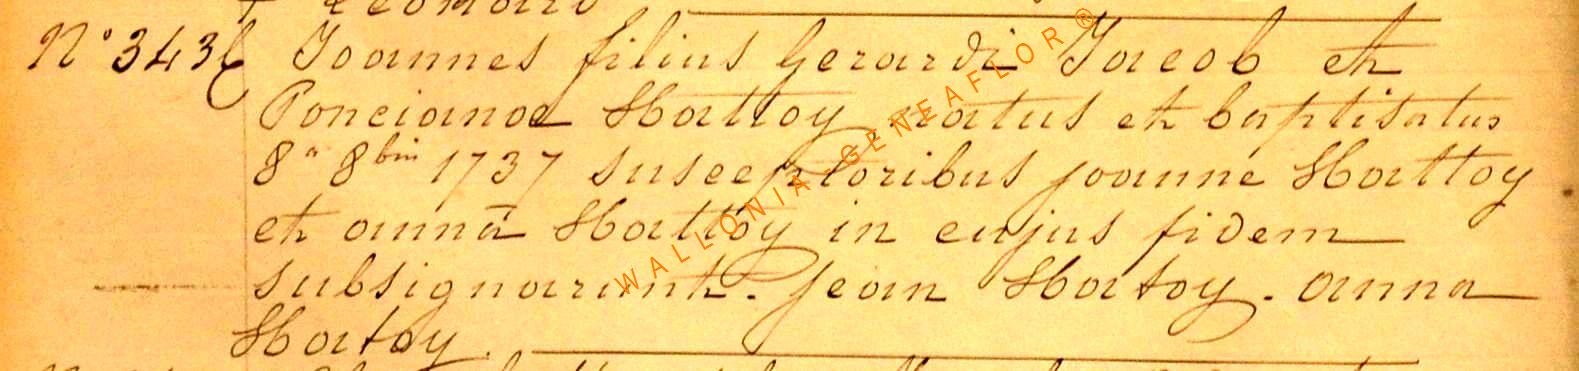 Leonard
N° 3436 Joannes filius Gerardi Jacob et
Poncianae Hattoy natus et baptisatus
8ª 8bris 1737 susceptoribus joanne Hattoy
et annā Hattoy in cujus fidem
subsignarunt. jean Hatoy. anna
Hatoy.
WALLONIA-GENEAFLOR®